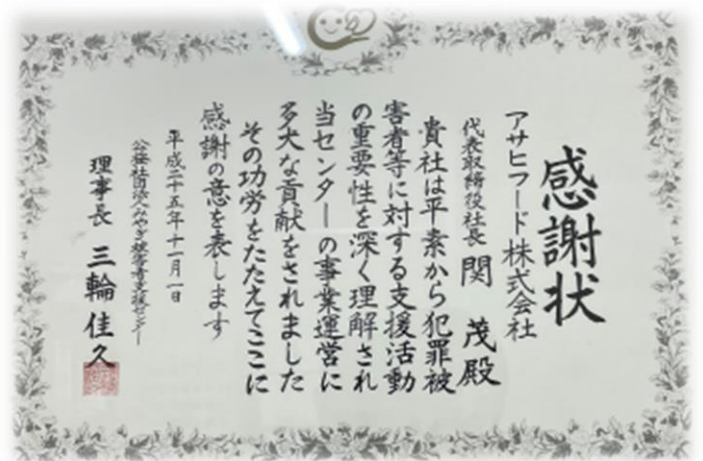 感謝状
アサヒフード株式会社
代表取締役社長 関 茂殿
貴社は平素から犯罪被
害者等に対する支援活動
の重要性を深く理解され
当センターの事業運営に
多大な貢献をされました
その功労をたたえてここに
感謝の意を表します
平成二十五年十一月一日
公益社団法人みやぎ被害者支援センター
理事長 三輪佳久